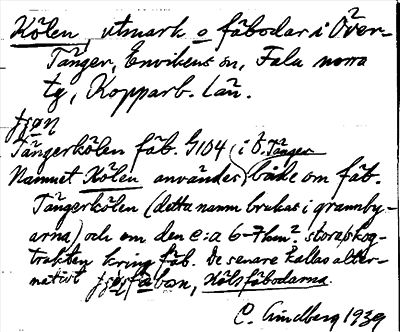 Kölen, utmark o fäbodar i Över-
Tänger, Envikens sn, Falu norra
tg, Kopparb. län.
Tängerkölen fäb. G104, i Ö. Tänger
Namnet Kölen användes både om fäb.
Tängerkölen (detta namn brukas i grannby-
arna) och om den c:a 6-7 km². stora skog-
trakten kring fäb. De senare kallas alter-
nativt Kölsfäbodarna.
C. Lindberg 1939